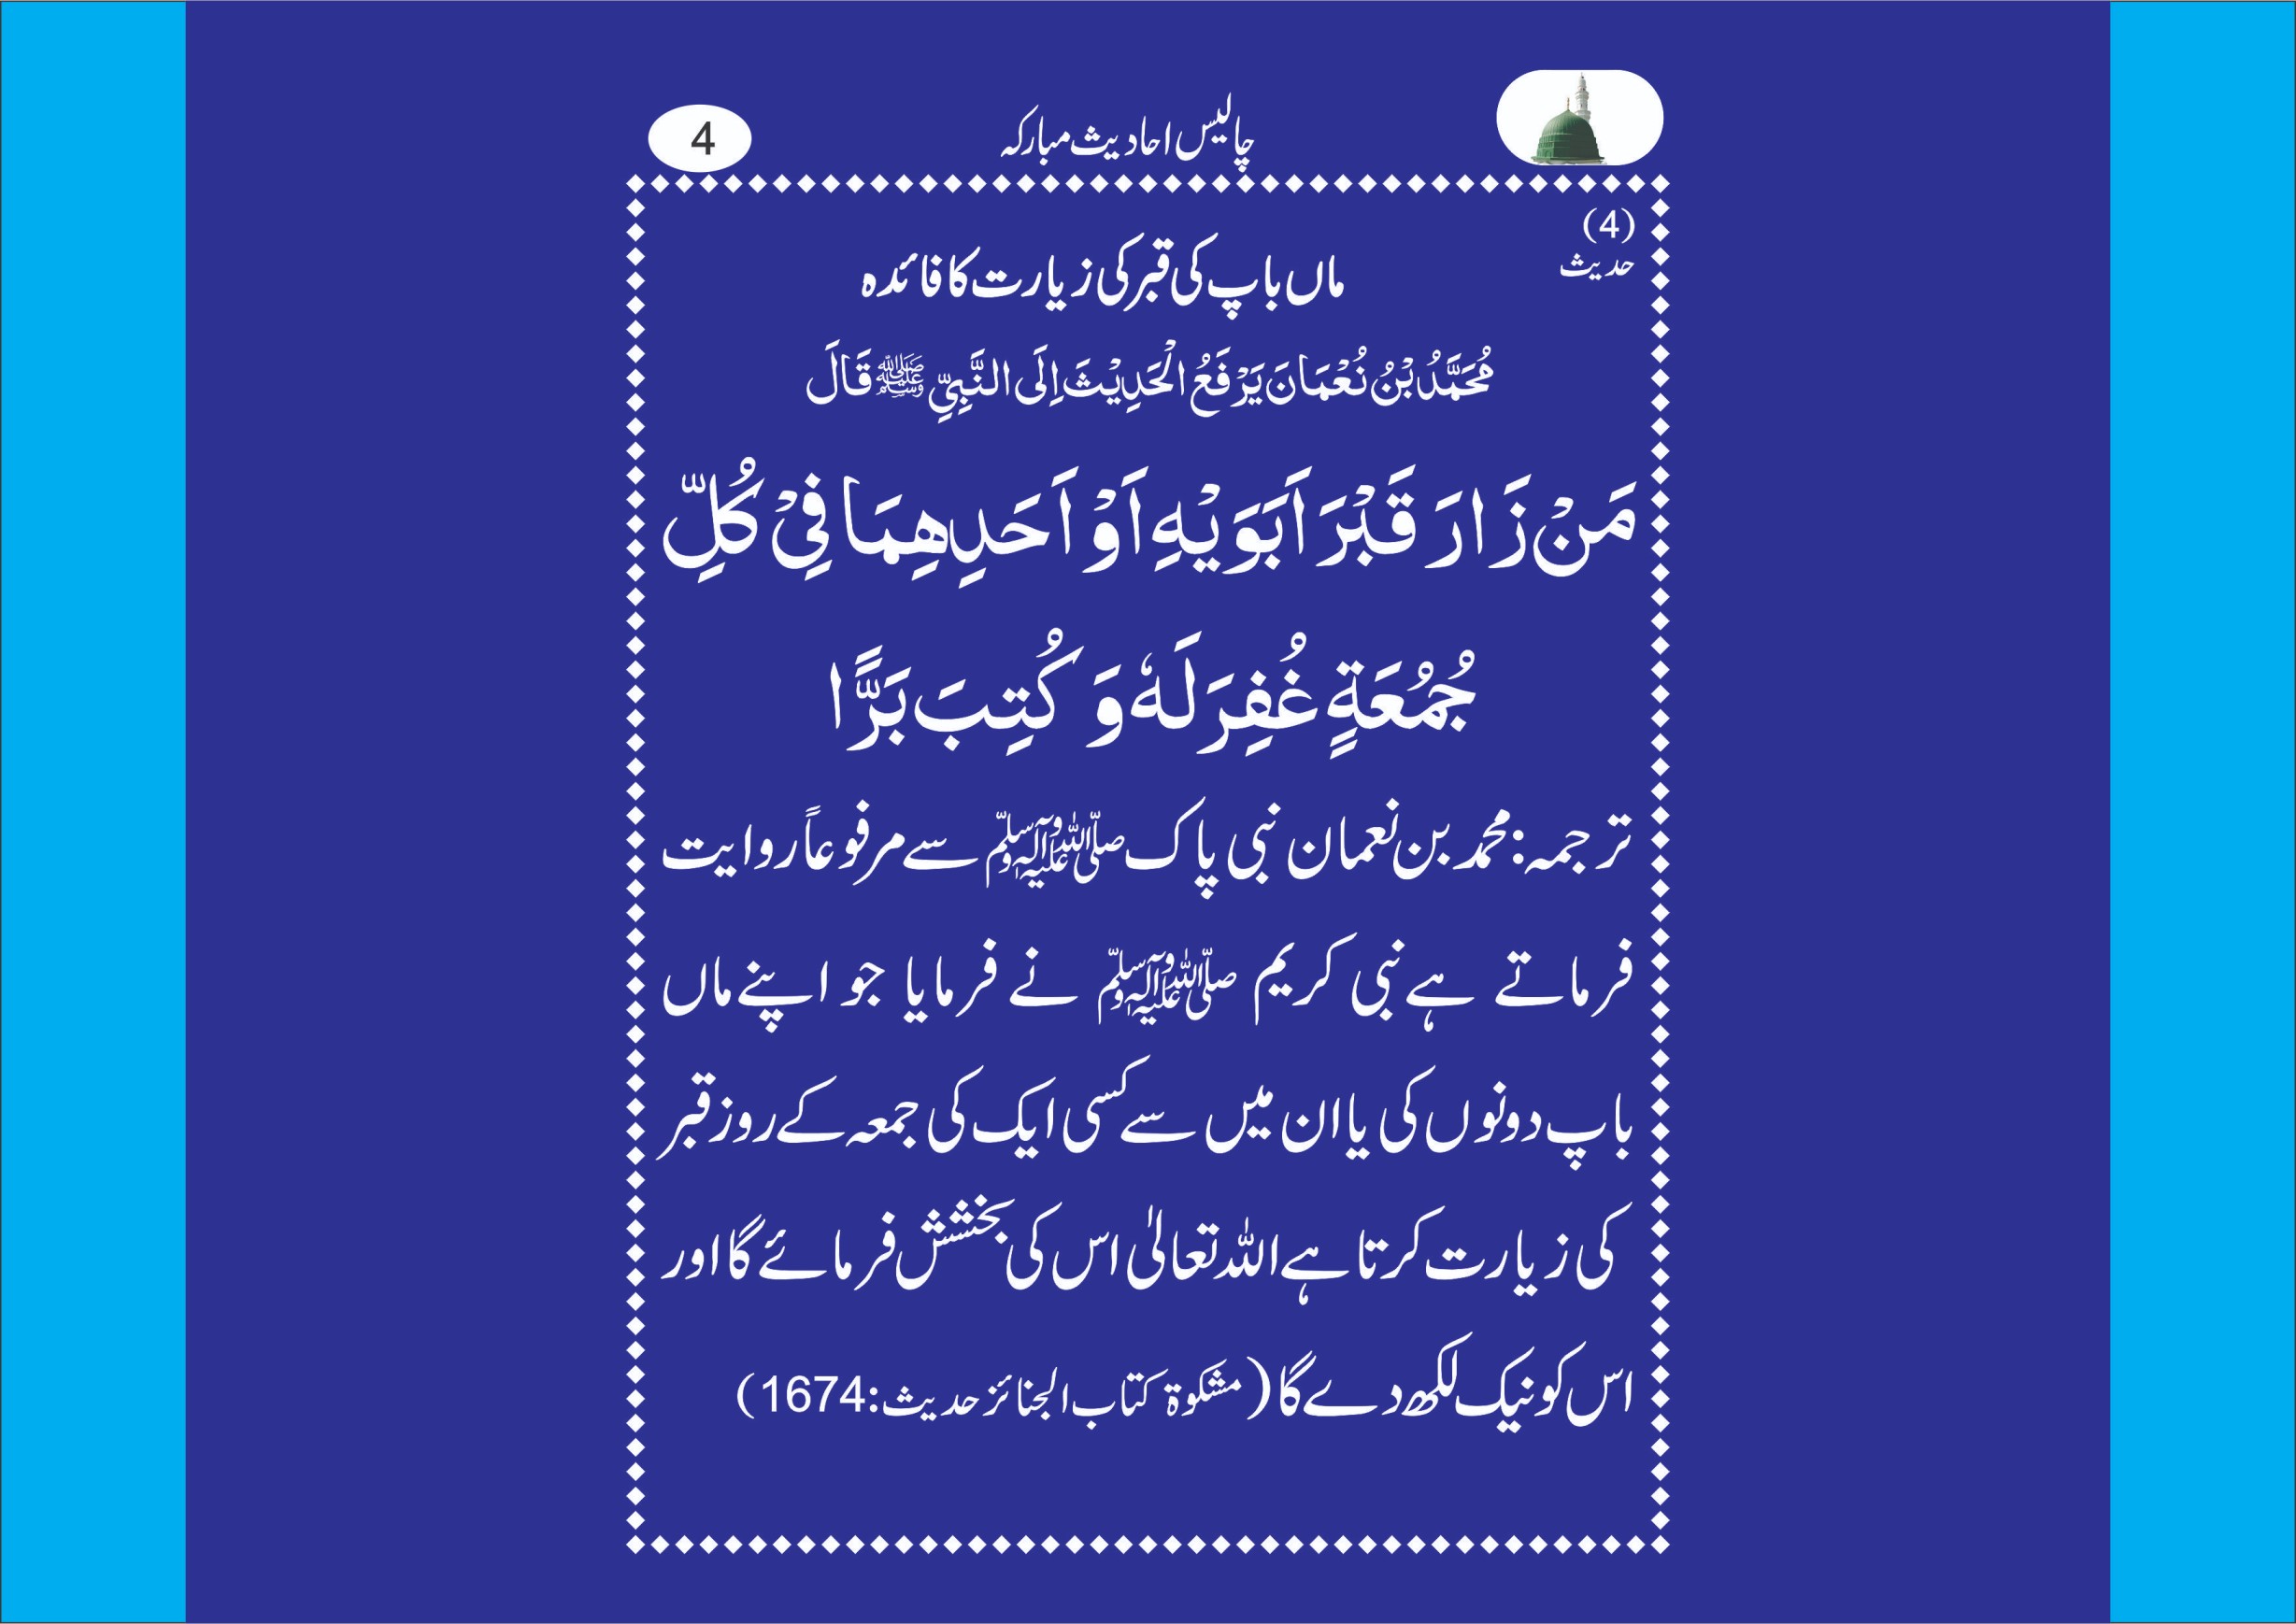 چالیس احادیث مبارکہ
4
(4)
حدیث
ماں باپ کی قبر کی زیارت کا فائدہ
مُحَمَّدُ بْنُ نُعْمَانَ يَرْفَعُ الْحَدِيْثَ اِلَى النَّبِيِّ ﷺ قَالَ
مَنْ زَارَ قَبْرَ اَبَوَيْهِ اَوْ اَحَدِهِمَا فِيْ كُلِّ
جُمُعَةٍ غُفِرَ لَهٗ وَ كُتِبَ بَرًّا
ترجمہ: محمد بن نعمان نبی پاک صلی اللہ علیہ وآلہ وسلم سے مرفوعاً روایت
فرماتے ہے نبی کریم صلی اللہ علیہ وآلہ وسلم نے فرمایا جو اپنے ماں
باپ دونوں کی یا ان میں سے کسی ایک کی جمعہ کے روز قبر
کی زیارت کرتا ہے اللہ تعالیٰ اس کی بخشش فرمائے گا اور
اس کو نیک لکھ دے گا (مشکوۃ کتاب الجنائز حدیث:1674)